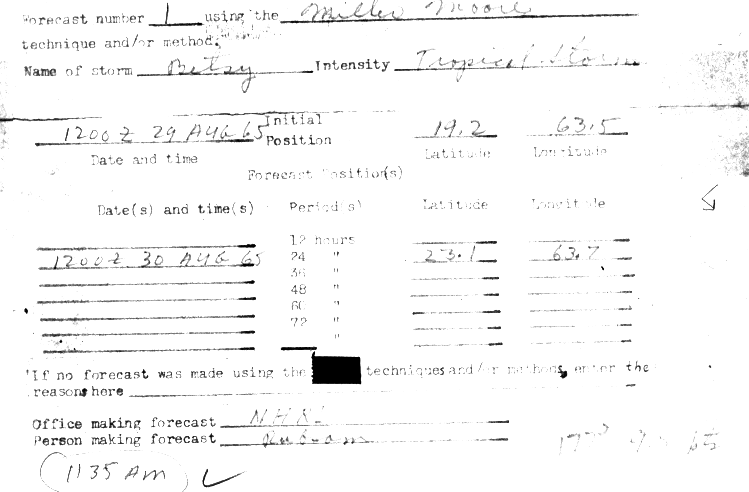 Forecast number 1 using the Miller Moore
technique and/or method.
Name of storm Betsy Intensity Tropical Storm
1200Z 29 AUG 65 Initial Position 19.2 63.5
Date and time Latitude Longitude
Forecast Position(s)
Date(s) and time(s) Period(s) Latitude Longitude
12 hours
1200Z 30 AUG 65 24 " 23.1 63.7
36 "
48 "
60 "
72 "
"
"If no forecast was made using the techniques and/or methods, enter the
reasons here
Office making forecast NHRL
Person making forecast
1135 AM